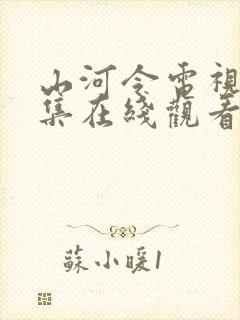 山河令電視
集在綫觀看
蘇小暖1